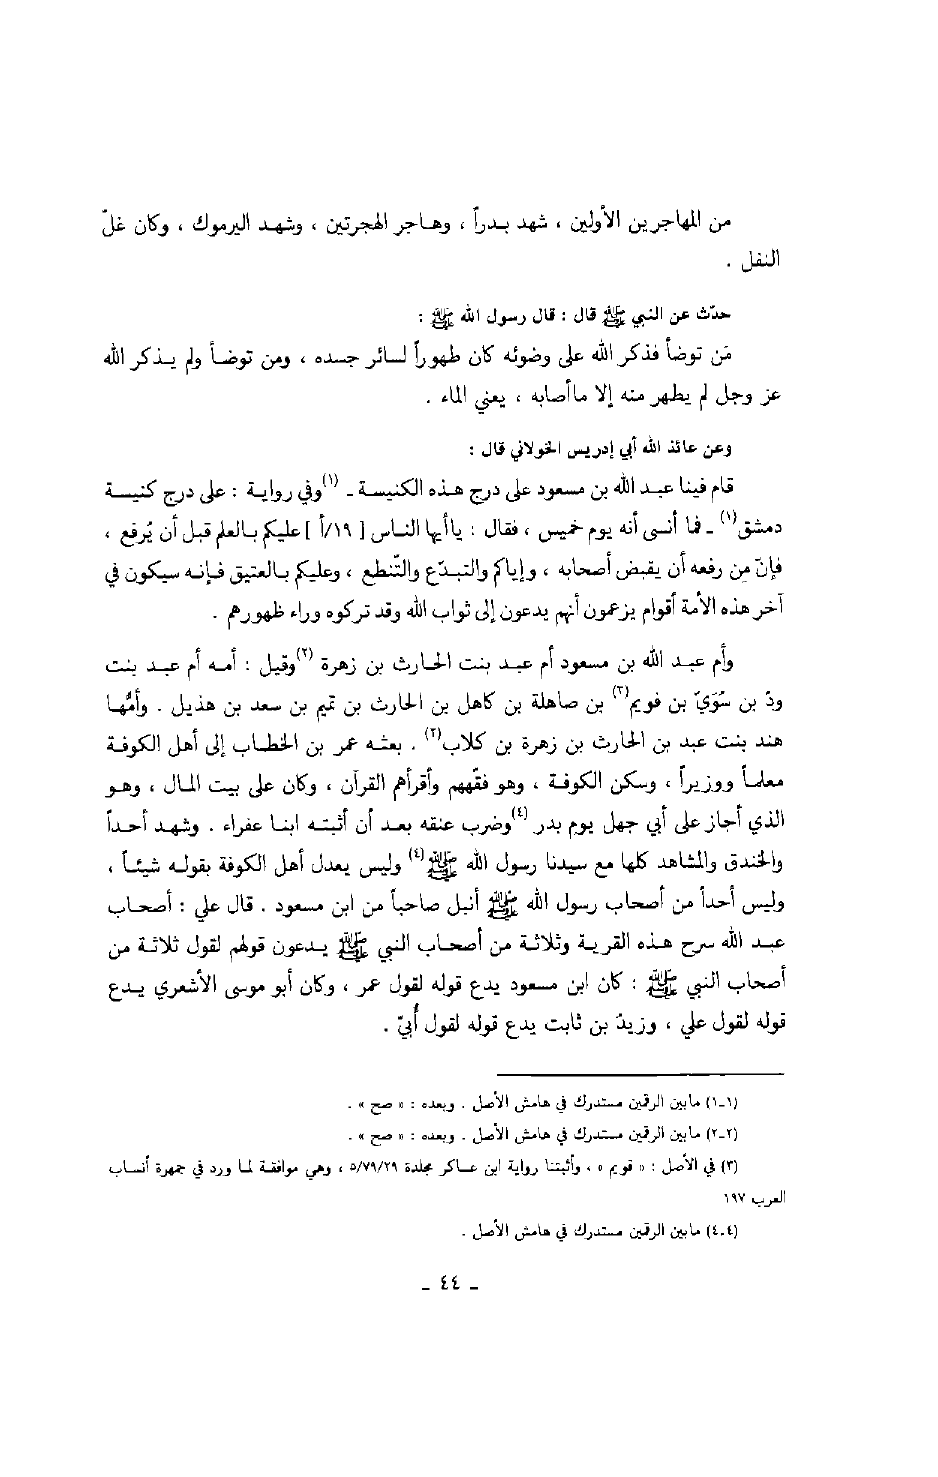 من المهاجرين الأولين ، شهد بدراً ، وهاجر الهجرتين ، وشهد اليرموك ، وكان غلّ
النفل .
حدّث عن النبي ﷺ قال : قال رسول الله ﷺ :
مَن توضأ فذكر الله على وضوئه كان طهوراً لسائر جسده ، ومن توضأ ولم يذكر الله
عز وجل لم يطهر منه إلا ماأصابه ، يعني الماء .
وعن عائذ الله أبي إدريس الخولاني قال :
قام فينا عبد الله بن مسعود على درج هذه الكنيسة ـ (١)وفي رواية : على درج كنيسة
دمشق(١) ـ فما أنسى أنه يوم خميس ، فقال : ياأيها الناس [ ١٩/أ ] عليكم بالعلم قبل أن يُرفع ،
فإنّ من رفعه أن يقبض أصحابه ، وإياكم والتبدّع والتّنطع ، وعليكم بالعتيق فإنه سيكون في
آخر هذه الأمة أقوام يزعمون أنهم يدعون إلى ثواب الله وقد تركوه وراء ظهورهم .
وأم عبد الله بن مسعود أم عبد بنت الحارث بن زهرة (٢)وقيل : أمه أم عبد بنت
ودّ بن سُوَيّ بن فويم(٣) بن صاهلة بن كاهل بن الحارث بن تميم بن سعد بن هذيل . وأمُّها
هند بنت عبد بن الحارث بن زهرة بن كلاب(٢) . بعثه عمر بن الخطاب إلى أهل الكوفة
معلماً ووزيراً ، وسكن الكوفة ، وهو فقّههم وأقرأهم القرآن ، وكان على بيت المال ، وهو
الذي أجاز على أبي جهل يوم بدر (٤)وضرب عنقه بعد أن أثبته ابنا عفراء . وشهد أحداً
والخندق والمشاهد كلها مع سيدنا رسول الله ﷺ(٤) وليس يعدل أهل الكوفة بقوله شيئاً ،
وليس أحداً من أصحاب رسول الله ﷺ أنبل صاحباً من ابن مسعود . قال علي : أصحاب
عبد الله سرج هذه القرية وثلاثة من أصحاب النبي ﷺ يدعون قولهم لقول ثلاثة من
أصحاب النبي ﷺ : كان ابن مسعود يدع قوله لقول عمر ، وكان أبو موسى الأشعري يدع
قوله لقول علي ، وزيدُ بن ثابت يدع قوله لقول أُبيّ .
(١ـ١) مابين الرقمين مستدرك في هامش الأصل . وبعده : « صح » .
(٢ـ٢) مابين الرقمين مستدرك في هامش الأصل . وبعده : « صح » .
(٣) في الأصل : « قويم » ، وأثبتنا رواية ابن عساكر مجلدة ٥/٧٩/٢٩ ، وهي موافقة لما ورد في جمهرة أنساب
العرب ١٩٧
(٤ـ٤) مابين الرقمين مستدرك في هامش الأصل .
ـ ٤٤ ـ